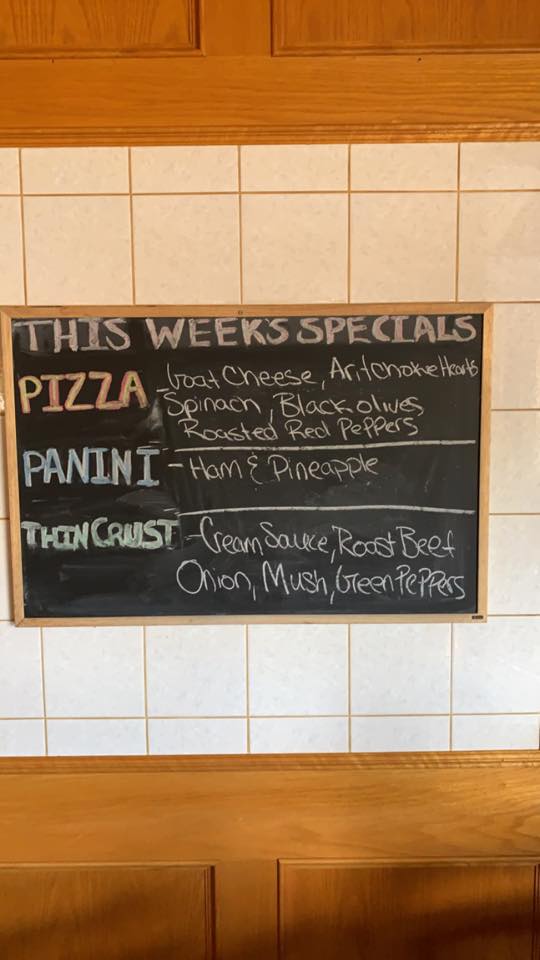 THIS WEEK'S SPECIALS
PIZZA - Goat Cheese, Aritchoke Hearts
Spinach, Black olives
Roasted Red Peppers
PANINI - Ham & Pineapple
THIN CRUST - Cream Sauce, Roast Beef
Onion, Mush, Green Peppers